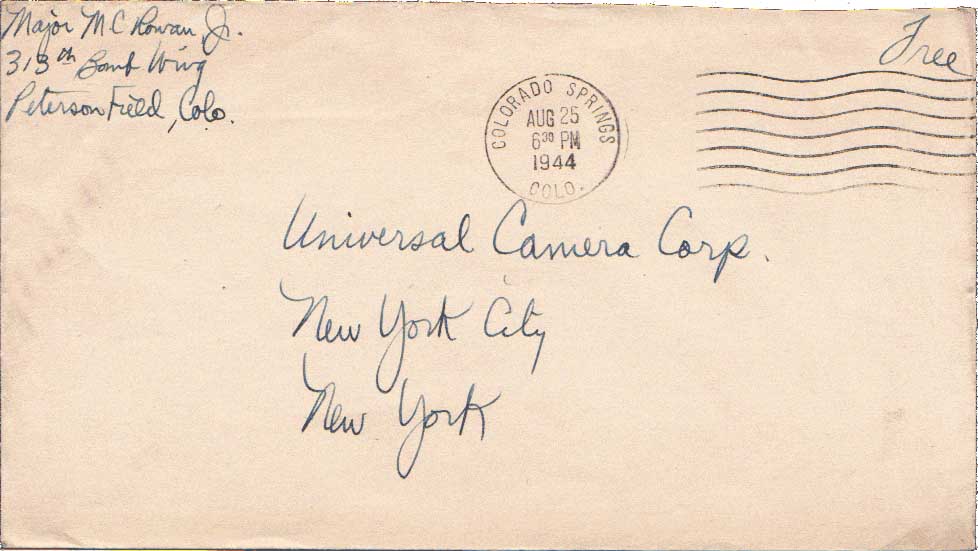 Major M C Rowan, Jr.
313th Bomb Wing
Peterson Field, Colo.
Free
COLORADO SPRINGS
AUG 25
630 PM
1944
COLO.
Universal Camera Corp.
New York City
New York